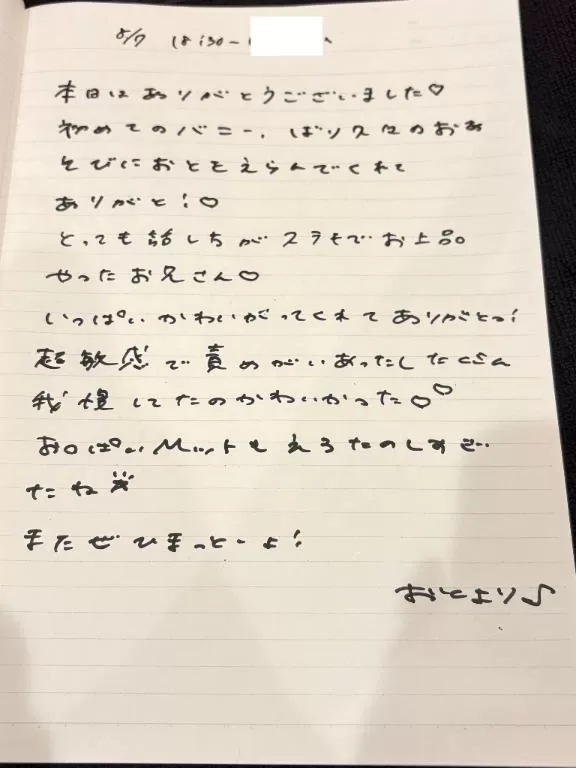 8/7 18:30-
本日はありがとうございました♡
初めてのバニー、ばり久々のおあ
そびにおとをえらんでくれて
ありがと!♡
とっても話し方がステキでお上品。
やったお兄さん♡
いっぱいかわいがってくれてありがとっ!
超敏感で責めがいあったしたくさん
我慢してたのかわいかった♡♡
おっぱいMットもえろたのしあじ‥
たね
またぜひまっとーよ!
おとより♪